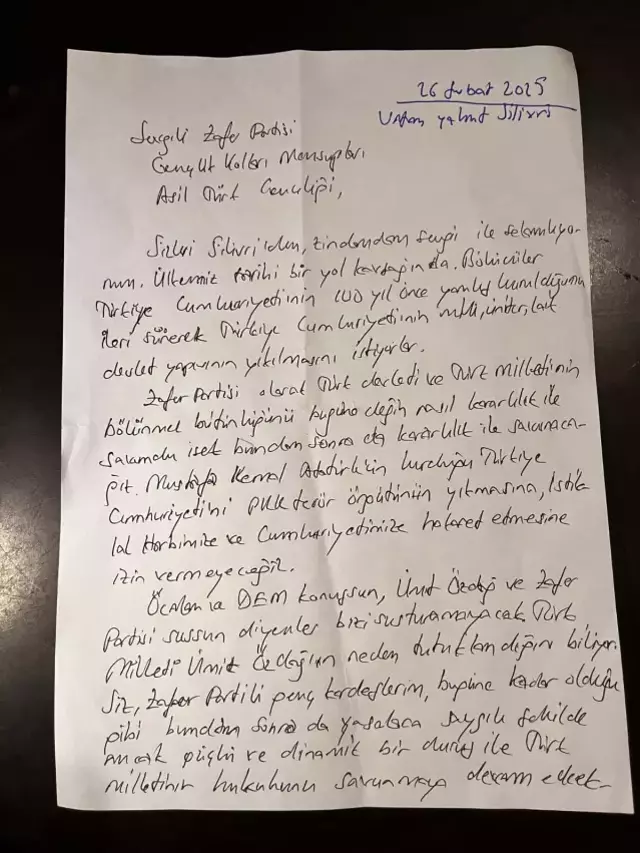 26 Şubat 2025
Vatan yahut Silivri
Sevgili Zafer Partisi
Gençlik Kolları Mensupları
Asil Türk Gençliği,
Sizleri Silivri'den, zindandan sevgi ile selamlıyo-
rum. Ülkemiz tarihi bir yol kavşağında. Bölücüler
Türkiye Cumhuriyetinin 100 yıl önce yanlış kurulduğunu
ileri sürerek Türkiye Cumhuriyetinin milli, üniter, laik
devlet yapısının yıkılmasını istiyorlar.
Zafer Partisi olarak Türk devleti ve Türk milletinin
bölünmez bütünlüğünü bugüne değin nasıl kararlılık ile
isek bundan sonra da kararlılık ile savunaca-
ğız. Mustafa Kemal Atatürk'ün kurduğu Türkiye
Cumhuriyetini PKK terör örgütünün yıkmasına, İstik-
lal Harbimize ve Cumhuriyetimize hakaret etmesine
izin vermeyeceğiz.
Öcalan ve DEM konuşsun, Ümit Özdağ ve Zafer
Partisi sussun diyenler bizi susturamayacak. Türk
Milleti Ümit Özdağ'ın neden tutuklandığını biliyor.
Siz, Zafer Partili genç kardeşlerim, bugüne kadar olduğu
gibi bundan sonra da yasalara saygılı şekilde
ancak güçlü ve dinamik bir duruş ile Türk
milletinin hukukunu savunmaya devam edecek-